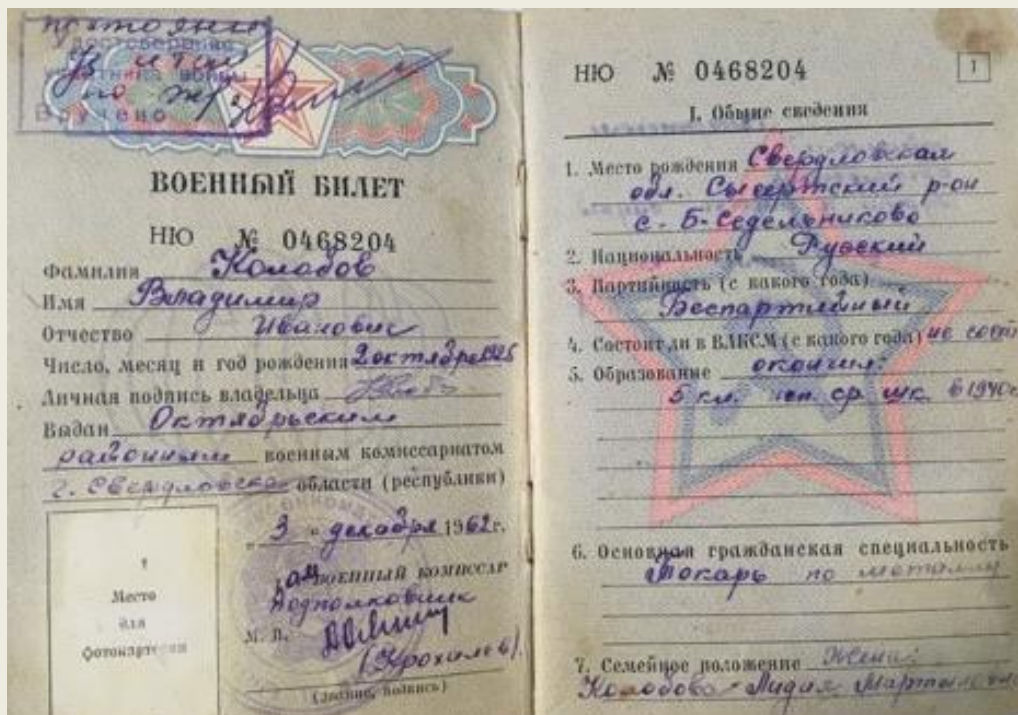 удостоверение
участника войны
Вручено
ВОЕННЫЙ БИЛЕТ
НЮ № 0468204
Фамилия Колобов
Имя Владимир
Отчество Иванович
Число, месяц и год рождения 2 октября 1925
Личная подпись владельца
Выдан Октябрьским
районным военным комиссариатом
г. Свердловска области (республики)
„ 3 “ декабря 1962 г.
Военный комиссар
Подполковник
М. П.
(Крохалев)
(звание, подпись)
Место
для
фотокарточки
НЮ № 0468204
1
I. Общие сведения
1. Место рождения Свердловская
обл. Сысертский р-он
с. Б-Седельниково
2. Национальность Русский
3. Партийность (с какого года)
Беспартийный
4. Состоит ли в ВЛКСМ (с какого года) не сост
5. Образование окончил:
5 кл. неп. ср. шк. в 1940 г
6. Основная гражданская специальность
Токарь по металлу
7. Семейное положение Жена:
Колобова Лидия